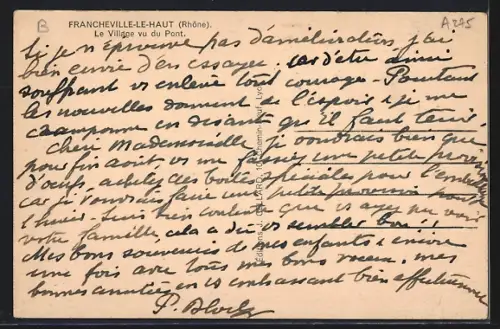 B
FRANCHEVILLE-LE-HAUT (Rhône).
A275
Le Village vu du Pont.
Si je n'éprouve pas d'amélioration j'ai
bien envie d'en essayer. car d'être ainsi
souffrant vs enlève tout courage - Pourtant
les nouvelles donnent de l'espoir & je me
cramponne en disant qu'il faut tenir.
Chère Mademoiselle, je voudrais bien que
pour fin août vs me fassiez une petite provision
d'œufs, achetez des boîtes spéciales pour l'emballage
car je voudrais faire une petite provision pour
l'hiver. Suis très contente que vs ayez pu voir
votre famille, cela a dû vs sembler bon!!
Mes bons souvenirs de mes enfants & encore
une fois avec tous mes bons vœux, mes
bonnes amitiés en vs embrassant bien affectueusement
P. Bloch
Edition J. CELLARD